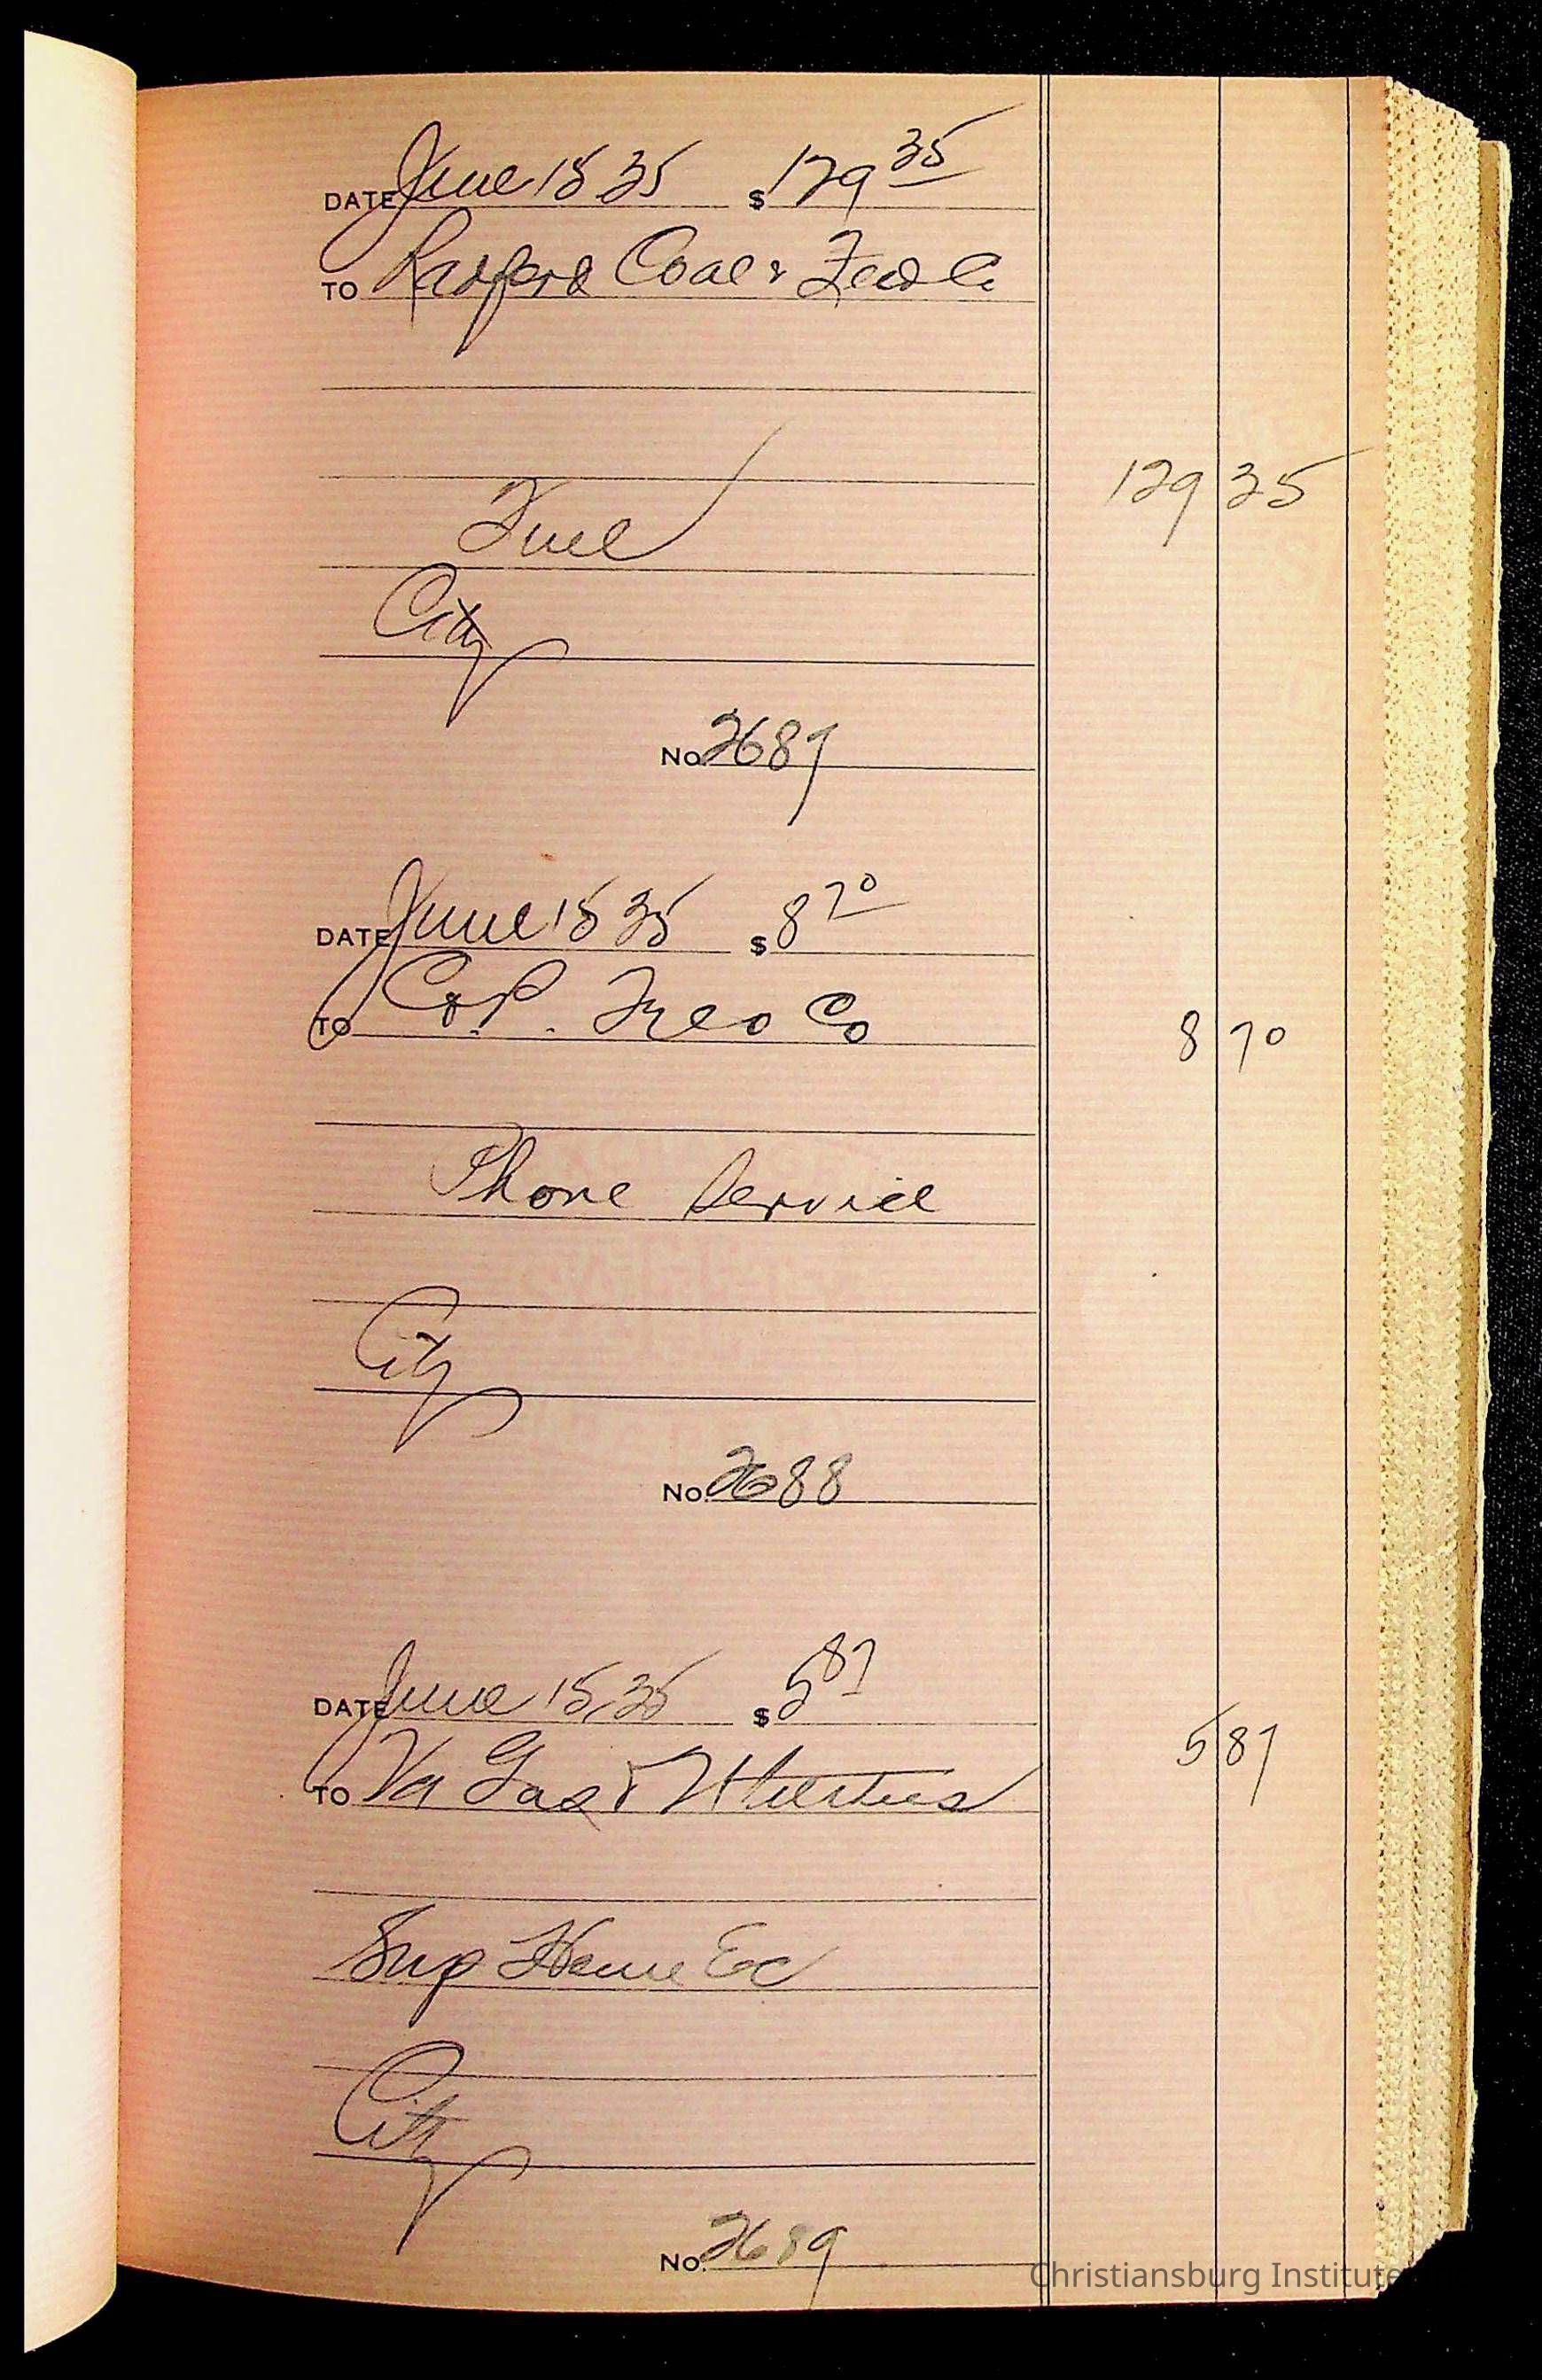 DATE June 15 35 $129 35
TO Radford Coal & Feed Co
129 35
Fuel
City
No. 2687
DATE June 15 35 $8 70
TO C & P. Tel Co
8 70
Phone Service
City
No. 2688
DATE June 15, 35 $5 87
TO Va Gas & Utilities
5 87
Sup Home Ec
City
No. 2689
Christiansburg Institute